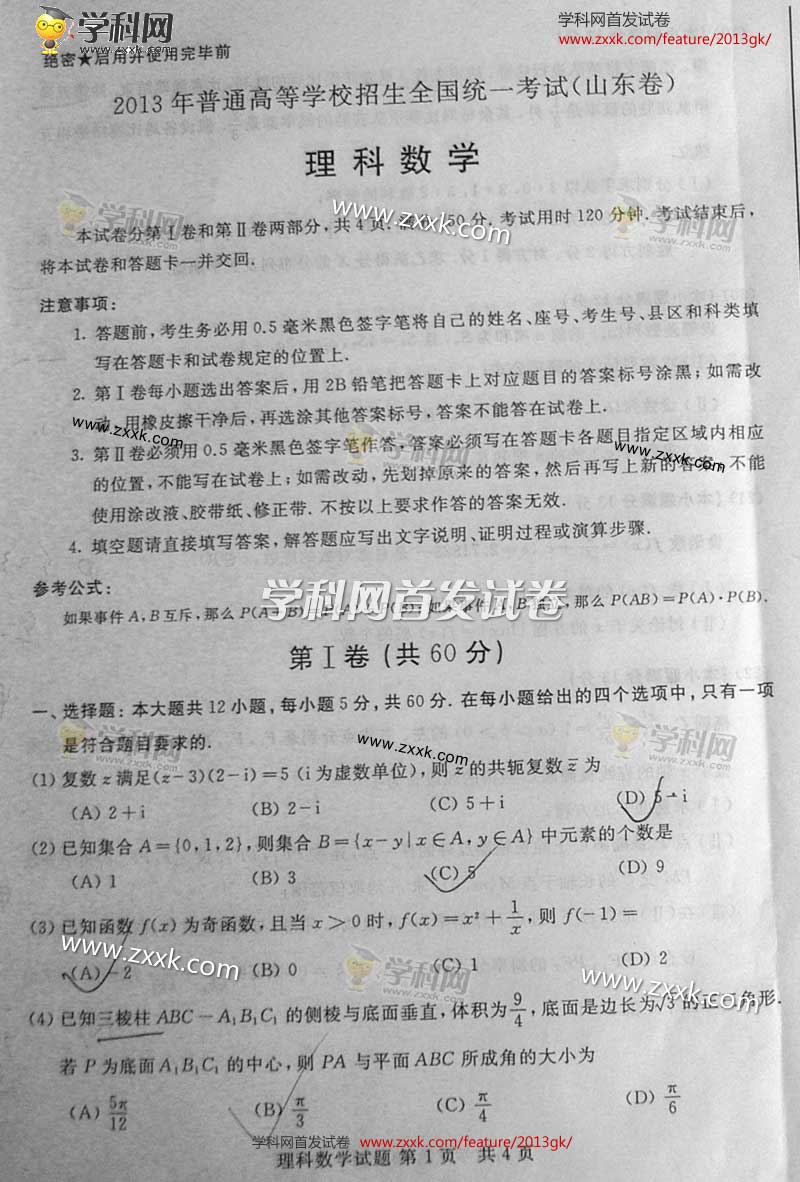 学科网
zxxk.com
学科网首发试卷
www.zxxk.com/feature/2013gk/
绝密★启用并使用完毕前
2013 年普通高等学校招生全国统一考试(山东卷)
理科数学
学科网
zxxk.com
www.zxxk.com
学科网
zxxk.com
本试卷分第Ⅰ卷和第Ⅱ卷两部分,共 4 页. 50 分. 考试用时 120 分钟. 考试结束后,
将本试卷和答题卡一并交回.
注意事项:
1. 答题前,考生务必用 0.5 毫米黑色签字笔将自己的姓名、座号、考生号、县区和科类填
写在答题卡和试卷规定的位置上.
2. 第Ⅰ卷每小题选出答案后,用 2B 铅笔把答题卡上对应题目的答案标号涂黑;如需改
动,用橡皮擦干净后,再选涂其他答案标号,答案不能答在试卷上.
www.zxxk.com
学科网
zxxk.com
www.zxxk.com
3. 第Ⅱ卷必须用 0.5 毫米黑色签字笔作答,答案必须写在答题卡各题目指定区域内相应
的位置,不能写在试卷上;如需改动,先划掉原来的答案,然后再写上新的答案,不能
使用涂改液、胶带纸、修正带. 不按以上要求作答的答案无效.
4. 填空题请直接填写答案,解答题应写出文字说明、证明过程或演算步骤.
参考公式:
学科网首发试卷
如果事件 A,B 互斥,那么 P(A+B)= 如果事件 A,B 独立,那么 P(AB)=P(A)·P(B).
第Ⅰ卷(共 60 分)
一、选择题:本大题共 12 小题,每小题 5 分,共 60 分. 在每小题给出的四个选项中,只有一项
是符合题目要求的.
学科网
zxxk.com
www.zxxk.com
学科网
zxxk.com
(1) 复数 z 满足(z-3)(2-i)=5 (i 为虚数单位),则 z 的共轭复数 z̄ 为
(A) 2+i (B) 2-i (C) 5+i (D) 5-i
(2) 已知集合 A={0,1,2},则集合 B={x-y|x∈A,y∈A} 中元素的个数是
(A) 1 (B) 3 (C) 5 (D) 9
(3) 已知函数 f(x) 为奇函数,且当 x>0 时,f(x)=x²+1/x,则 f(-1)=
(A) -2 (B) 0 (C) 1 (D) 2
www.zxxk.com
学科网
zxxk.com
www.zxxk.com
(4) 已知三棱柱 ABC-A₁B₁C₁ 的侧棱与底面垂直,体积为 9/4,底面是边长为√3 的正三角形.
若 P 为底面 A₁B₁C₁ 的中心,则 PA 与平面 ABC 所成角的大小为
(A) 5π/12 (B) π/3 (C) π/4 (D) π/6
学科网首发试卷 www.zxxk.com/feature/2013gk/
理科数学试题 第 1 页 共 4 页